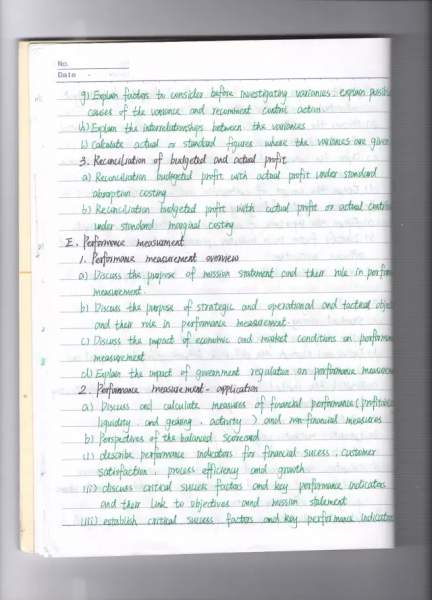 No.
Date
g) Explain factors to consider before investigating variances. explain possib
causes of the variance and recomment control action.
h) Explain the interrelationships between the variances
i) Calculate actual or standard figures where the variances are given
3. Reconciliation of budgeted and actual profit
a) Reconciliation budgeted profit with actual profit under standard
absorption costing
b) Reconciliation budgeted profit with actual profit or actual contri
under standard marginal costing
E. Performance measurement
1. Performance measurement overview
a) Discuss the purpose of mission statement and their role in perfor
measurement.
b) Discuss the purpose of strategic and operational and tactical obje
and their role in performance measurement.
c) Discuss the impact of economic and market conditions on performan
measurement
d) Explain the impact of government regulation on performance measurem
2. Performance measurement - application
a) Discuss and calculate measures of financial performance (profitabi
liquidity and gearing . activity ) and non-financial measures
b) Perspectives of the balanced scorecard
(i) describe performance indicators for financial sucess , customer
satisfaction , process efficiency and growth
(ii) discuss critical success factors and key performance indicators
and their link to objectives and mission statement
(iii) establish critical sucess factors and key performance indicator